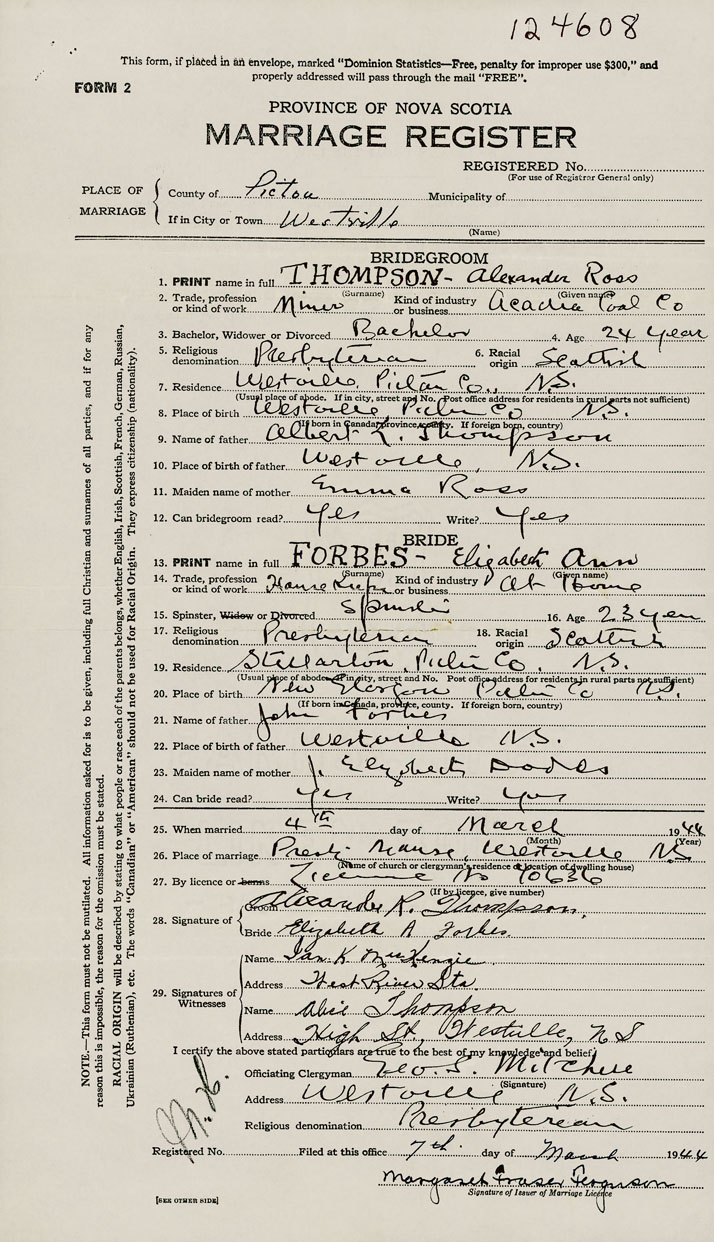 124608
This form, if placed in an envelope, marked "Dominion Statistics—Free, penalty for improper use $300," and
properly addressed will pass through the mail "FREE".
FORM 2
PROVINCE OF NOVA SCOTIA
MARRIAGE REGISTER
REGISTERED No.
(For use of Registrar General only)
PLACE OF MARRIAGE
County of Pictou Municipality of
If in City or Town Westville
(Name)
BRIDEGROOM
1. PRINT name in full THOMPSON - Alexander Ross
(Surname) (Given name)
2. Trade, profession or kind of work Miner Kind of industry or business Acadia Coal Co
3. Bachelor, Widower or Divorced Bachelor 4. Age 24 year
5. Religious denomination Presbyterian 6. Racial origin Scottish
7. Residence Westville, Pictou Co., N.S.
(Usual place of abode. If in city, street and No. Post office address for residents in rural parts not sufficient)
8. Place of birth Westville, Pictou Co N.S.
(If born in Canada, province, county. If foreign born, country)
9. Name of father Albert L. Thompson
10. Place of birth of father Westville, N.S.
11. Maiden name of mother Emma Ross
12. Can bridegroom read? Yes Write? Yes
BRIDE
13. PRINT name in full FORBES - Elizabeth Ann
(Surname) (Given name)
14. Trade, profession or kind of work House Keeper Kind of industry or business At Home
15. Spinster, Widow or Divorced Spinster 16. Age 23 year
17. Religious denomination Presbyterian 18. Racial origin Scottish
19. Residence Stellarton, Pictou Co., N.S.
(Usual place of abode. If in city, street and No. Post office address for residents in rural parts not sufficient)
20. Place of birth New Glasgow Pictou Co N.S.
(If born in Canada, province, county. If foreign born, country)
21. Name of father John Forbes
22. Place of birth of father Westville N.S.
23. Maiden name of mother Elizabeth Dodds
24. Can bride read? Yes Write? Yes
25. When married 4th day of March 1944
(Month) (Year)
26. Place of marriage Presby. Manse, Westville N.S.
(Name of church or clergyman's residence or location of dwelling house)
27. By licence or banns Licence No 10636
(If by licence, give number)
28. Signature of
Groom Alexander R. Thompson
Bride Elizabeth A Forbes
29. Signatures of Witnesses
Name Ian K MacKenzie
Address West River Sta.
Name Alice Thompson
Address High St., Westville, N S
I certify the above stated particulars are true to the best of my knowledge and belief.
Officiating Clergyman Geo. L. Mitchell
(Signature)
Address Westville N.S.
Religious denomination Presbyterian
Registered No. Filed at this office 7th day of March 1944
Margaret Fraser Ferguson
Signature of Issuer of Marriage Licence
[SEE OTHER SIDE]
NOTE.—This form must not be mutilated. All information asked for is to be given, including full Christian and surnames of all parties, and if for any
reason this is impossible, the reason for the omission must be stated.
RACIAL ORIGIN will be described by stating to what people or race each of the parents belongs, whether English, Irish, Scottish, French, German, Russian,
Ukrainian (Ruthenian), etc. The words "Canadian" or "American" should not be used for Racial Origin. They express citizenship (nationality).